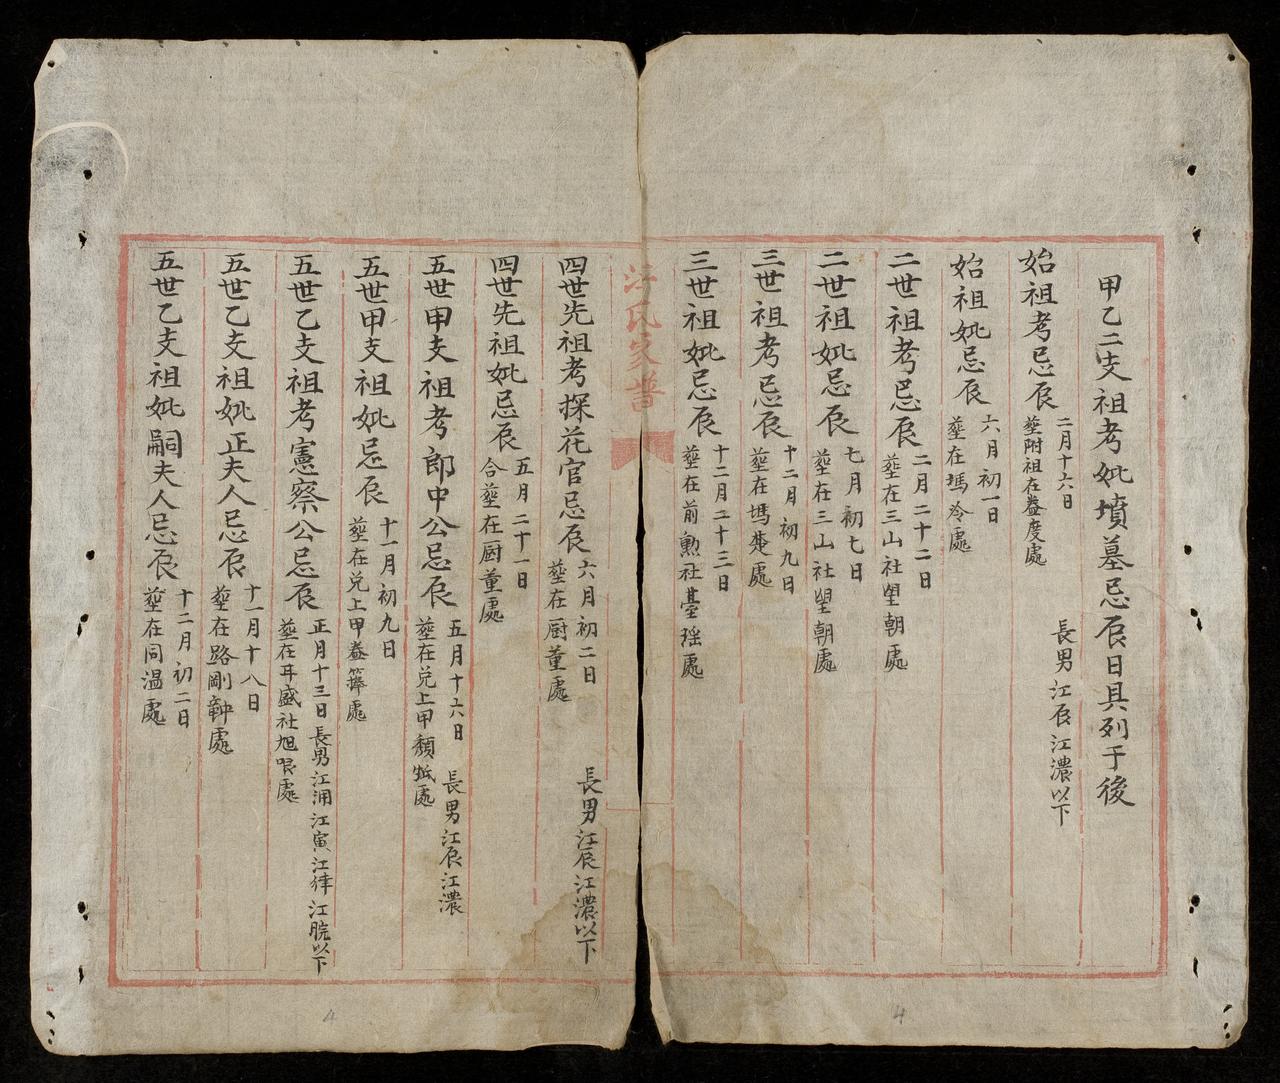 甲乙二支祖考妣墳墓忌辰日具列于後
長男江辰江濃以下
始祖考忌辰
二月十六日
塟附祖在盤度處
始祖妣忌辰
六月初一日
塟在瑪冷處
二世祖考忌辰
二月二十二日
塟在三山社望朝處
二世祖妣忌辰
七月初七日
塟在三山社望朝處
三世祖考忌辰
十二月初九日
塟在瑪楚處
三世祖妣忌辰
十二月二十三日
塟在前勲社臺瑶處
汪氏家譜
四世先祖考探花官忌辰
六月初二日
塟在厨董處
長男江辰江濃以下
四世先祖妣忌辰
五月二十一日
合塟在厨董處
五世甲支祖考郎中公忌辰
五月十六日
塟在兑上甲頽處
長男江辰江濃
五世甲支祖妣忌辰
十一月初九日
塟在兑上甲處
五世乙支祖考憲察公忌辰
正月十三日
塟在耳盛社旭處
長男江浦江寅江律江脘以下
五世乙支祖妣正夫人忌辰
十一月十八日
塟在路剛處
五世乙支祖妣嗣夫人忌辰
十二月初二日
塟在同温處
4
4